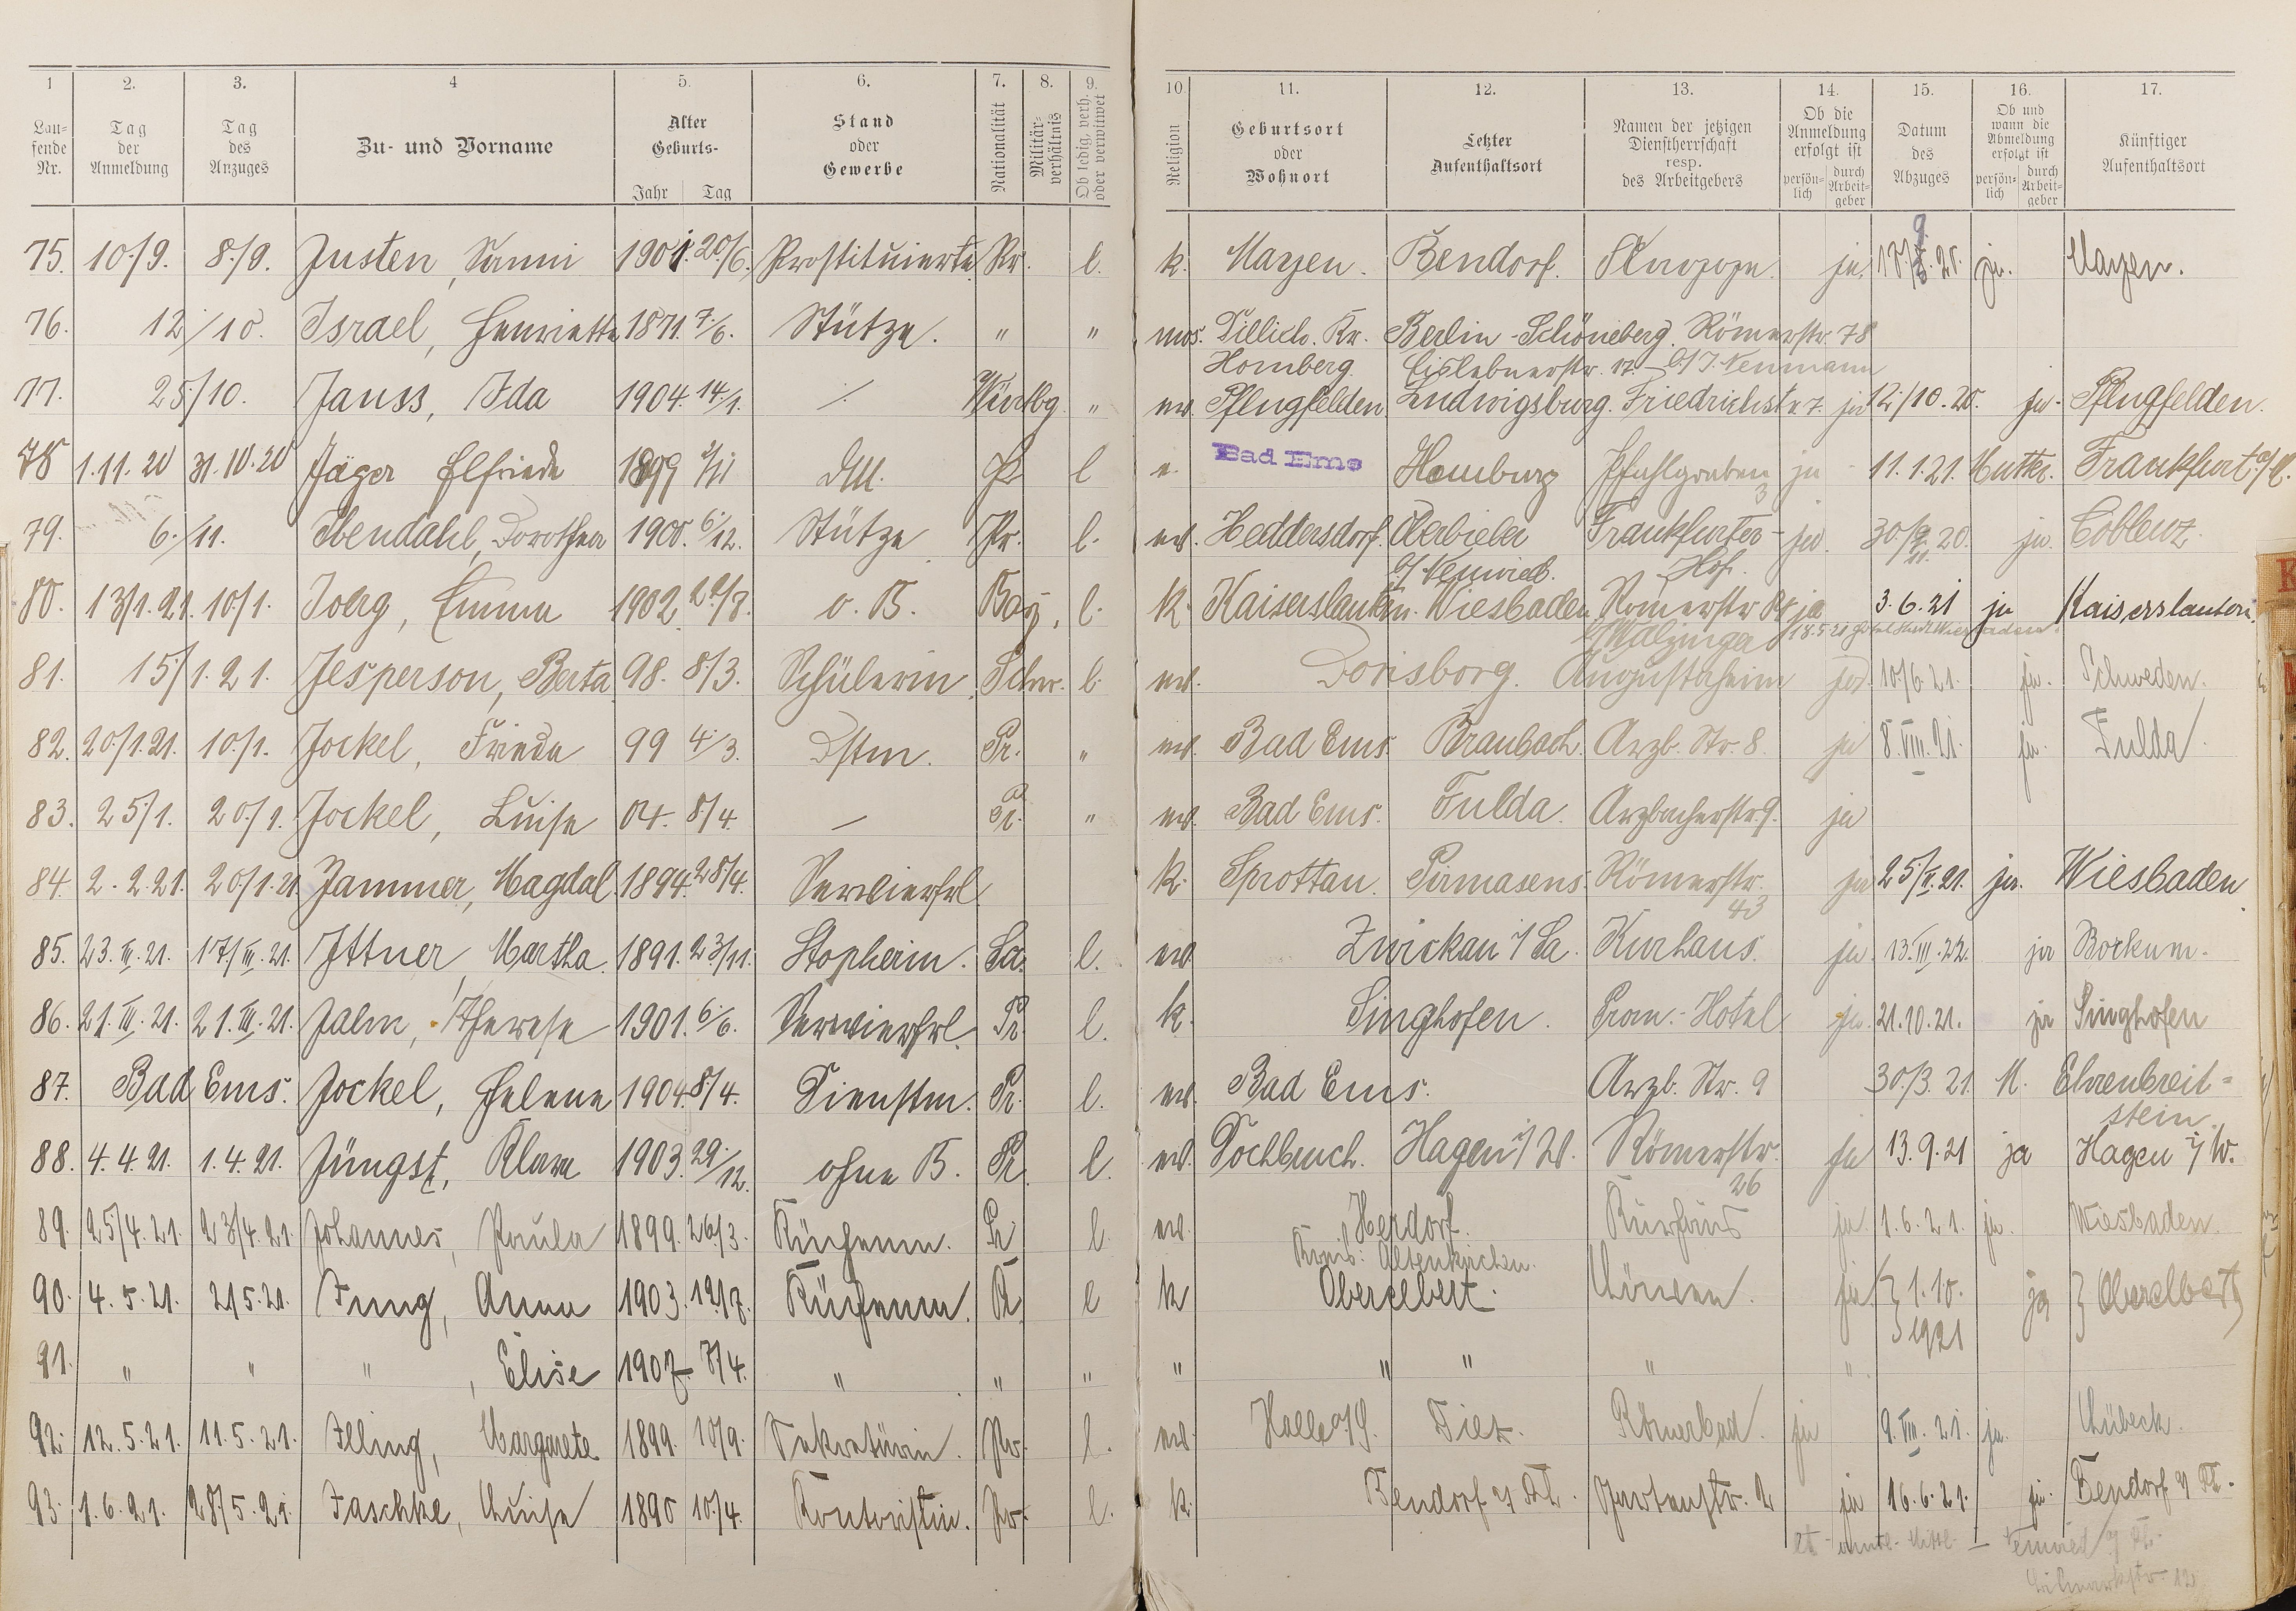 1 2. 3. 4 5. 6. 7. 8. 9. 10. 11. 12. 13. 14. 15. 16. 17.
Laufende Nr. Tag der Anmeldung Tag des Anzuges Zu- und Vorname Alter Geburts- Jahr Tag Stand oder Gewerbe Nationalität Militär-verhältnis Ob ledig, verh. oder verwitwet Religion Geburtsort oder Wohnort Letzter Aufenthaltsort Namen der jetzigen Dienstherrschaft resp. des Arbeitgebers Ob die Anmeldung erfolgt ist persön-lich durch Arbeit-geber Datum des Abzuges Ob und wann die Abmeldung erfolgt ist persön-lich durch Arbeit-geber Künftiger Aufenthaltsort
75. 10./9. 8./9. Justen, 1901. 20/6. Prostituierte Pr. l. k. Mayen. Bendorf. ja. ja. Mayen.
76. 12/10. Israel, Henriette 1871. 7./6. Stütze. " " mos. Dillich. Kr. Berlin-Schöneberg. Römerstr. 78
Homberg. Eislebnerstr. 17. b/ J. Neumann
77. 25/10. Janss, Ida 1904. 14./1. Württbg. " ev. Pflugfelden Ludwigsburg. Friedrichstr. 7. ja 12./10.20. ja. Pflugfelden.
78 1.11.20 31.10.20 Jäger Elfriede 1899 DM. Pr l e. Bad Ems Homburg Pfahlgraben 3 ja 11.1.21. Mutter. Frankfurt a/M.
79. 6./11. Ibendahl, Dorothea 1900. 6./12. Stütze Pr. l. ev. Heddersdorf. Oberbieber Frankfurter- ja. 20. ja. Coblenz.
b/ Neuwied. Hof.
80. 13/1.21. 10/1. Joerg, Emma 1902. o. B. Bay. l. k. Kaiserslautern. Wiesbaden Römerstr ja 3.6.21 ja Kaiserslautern.
81. 15/1.21. Jesperson, Berta 98. 8/3. Schülerin. Schw. l. ev. Dorisborg. Augustaheim ja. 10/6.21. ja. Schweden.
82. 20/1.21. 10./1. Jockel, Frieda 99 4./3. Dstm. Pr. " ev. Bad Ems. Braubach. Arzb. Str. 8. ja 8.VIII.21. ja. Fulda
83. 25/1. 20./1. Jockel, Luise 04. 8/4. — Pr. " ev. Bad Ems. Fulda. Arzbacherstr. 9. ja
84. 2.2.21. 20/1.21. Jammer, Magdal. 1894. 28/4. Servierfrl. k. Sprottau. Pirmasens. Römerstr. ja 25/II.21. ja. Wiesbaden.
43
85. 23.III.21. 17/III.21. Ittner, Martha. 1891. 23/11. Stopferin. Sa. l. ev. Zwickau i/Sa. Kurhaus. ja. 13.III.22. ja Borkum.
86. 21.III.21. 21.III.21. Jalm, Therese 1901. 6/6. Servierfrl. Pr. l. k. Singhofen. Prom.-Hotel ja. 21.10.21. ja Singhofen
87. Bad Ems. Jockel, Helene 1904. 8/4. Dienstm. Pr. l. ev. Bad Ems. Arzb. Str. 9 30/3.21. M. Ehrenbreit=
stein.
88. 4.4.21. 1.4.21. Jüngst, Klara 1903. 29./12. ohne B. Pr. l. ev. Hagen i/W. Römerstr. ja 13.9.21 ja Hagen i/W.
26
89. 25/4.21. 23/4.21. Johannes, Paula 1899. 26/3. Küchenm. Pr l. ev. Herdorf. Kurhaus ja. 1.6.21. ja. Wiesbaden.
Kreis: Altenkirchen.
90. 4.5.21. 2/5.21. Jung, Anna 1903. Küchenm. Pr. l k Oberelbert. Löwen. ja. 1.10. ja Oberelbert
1921
91. " " " , Elise 1907. " " " " " " " "
92. 12.5.21. 11.5.21. Illing, Margarete 1899. 10/9. Sekretärin. Pr. l. ev. Halle a/S. Diez. Römerbad. ja 9.VIII.21. ja. Lübeck.
93. 1.6.21. 28/5.21. Jaschke, Luise 1890 10./4. Kontoristin. Pr. l. k. Bendorf a/Rh. Gartenstr. 2 ja 16.6.21. ja. Bendorf a/Rh.